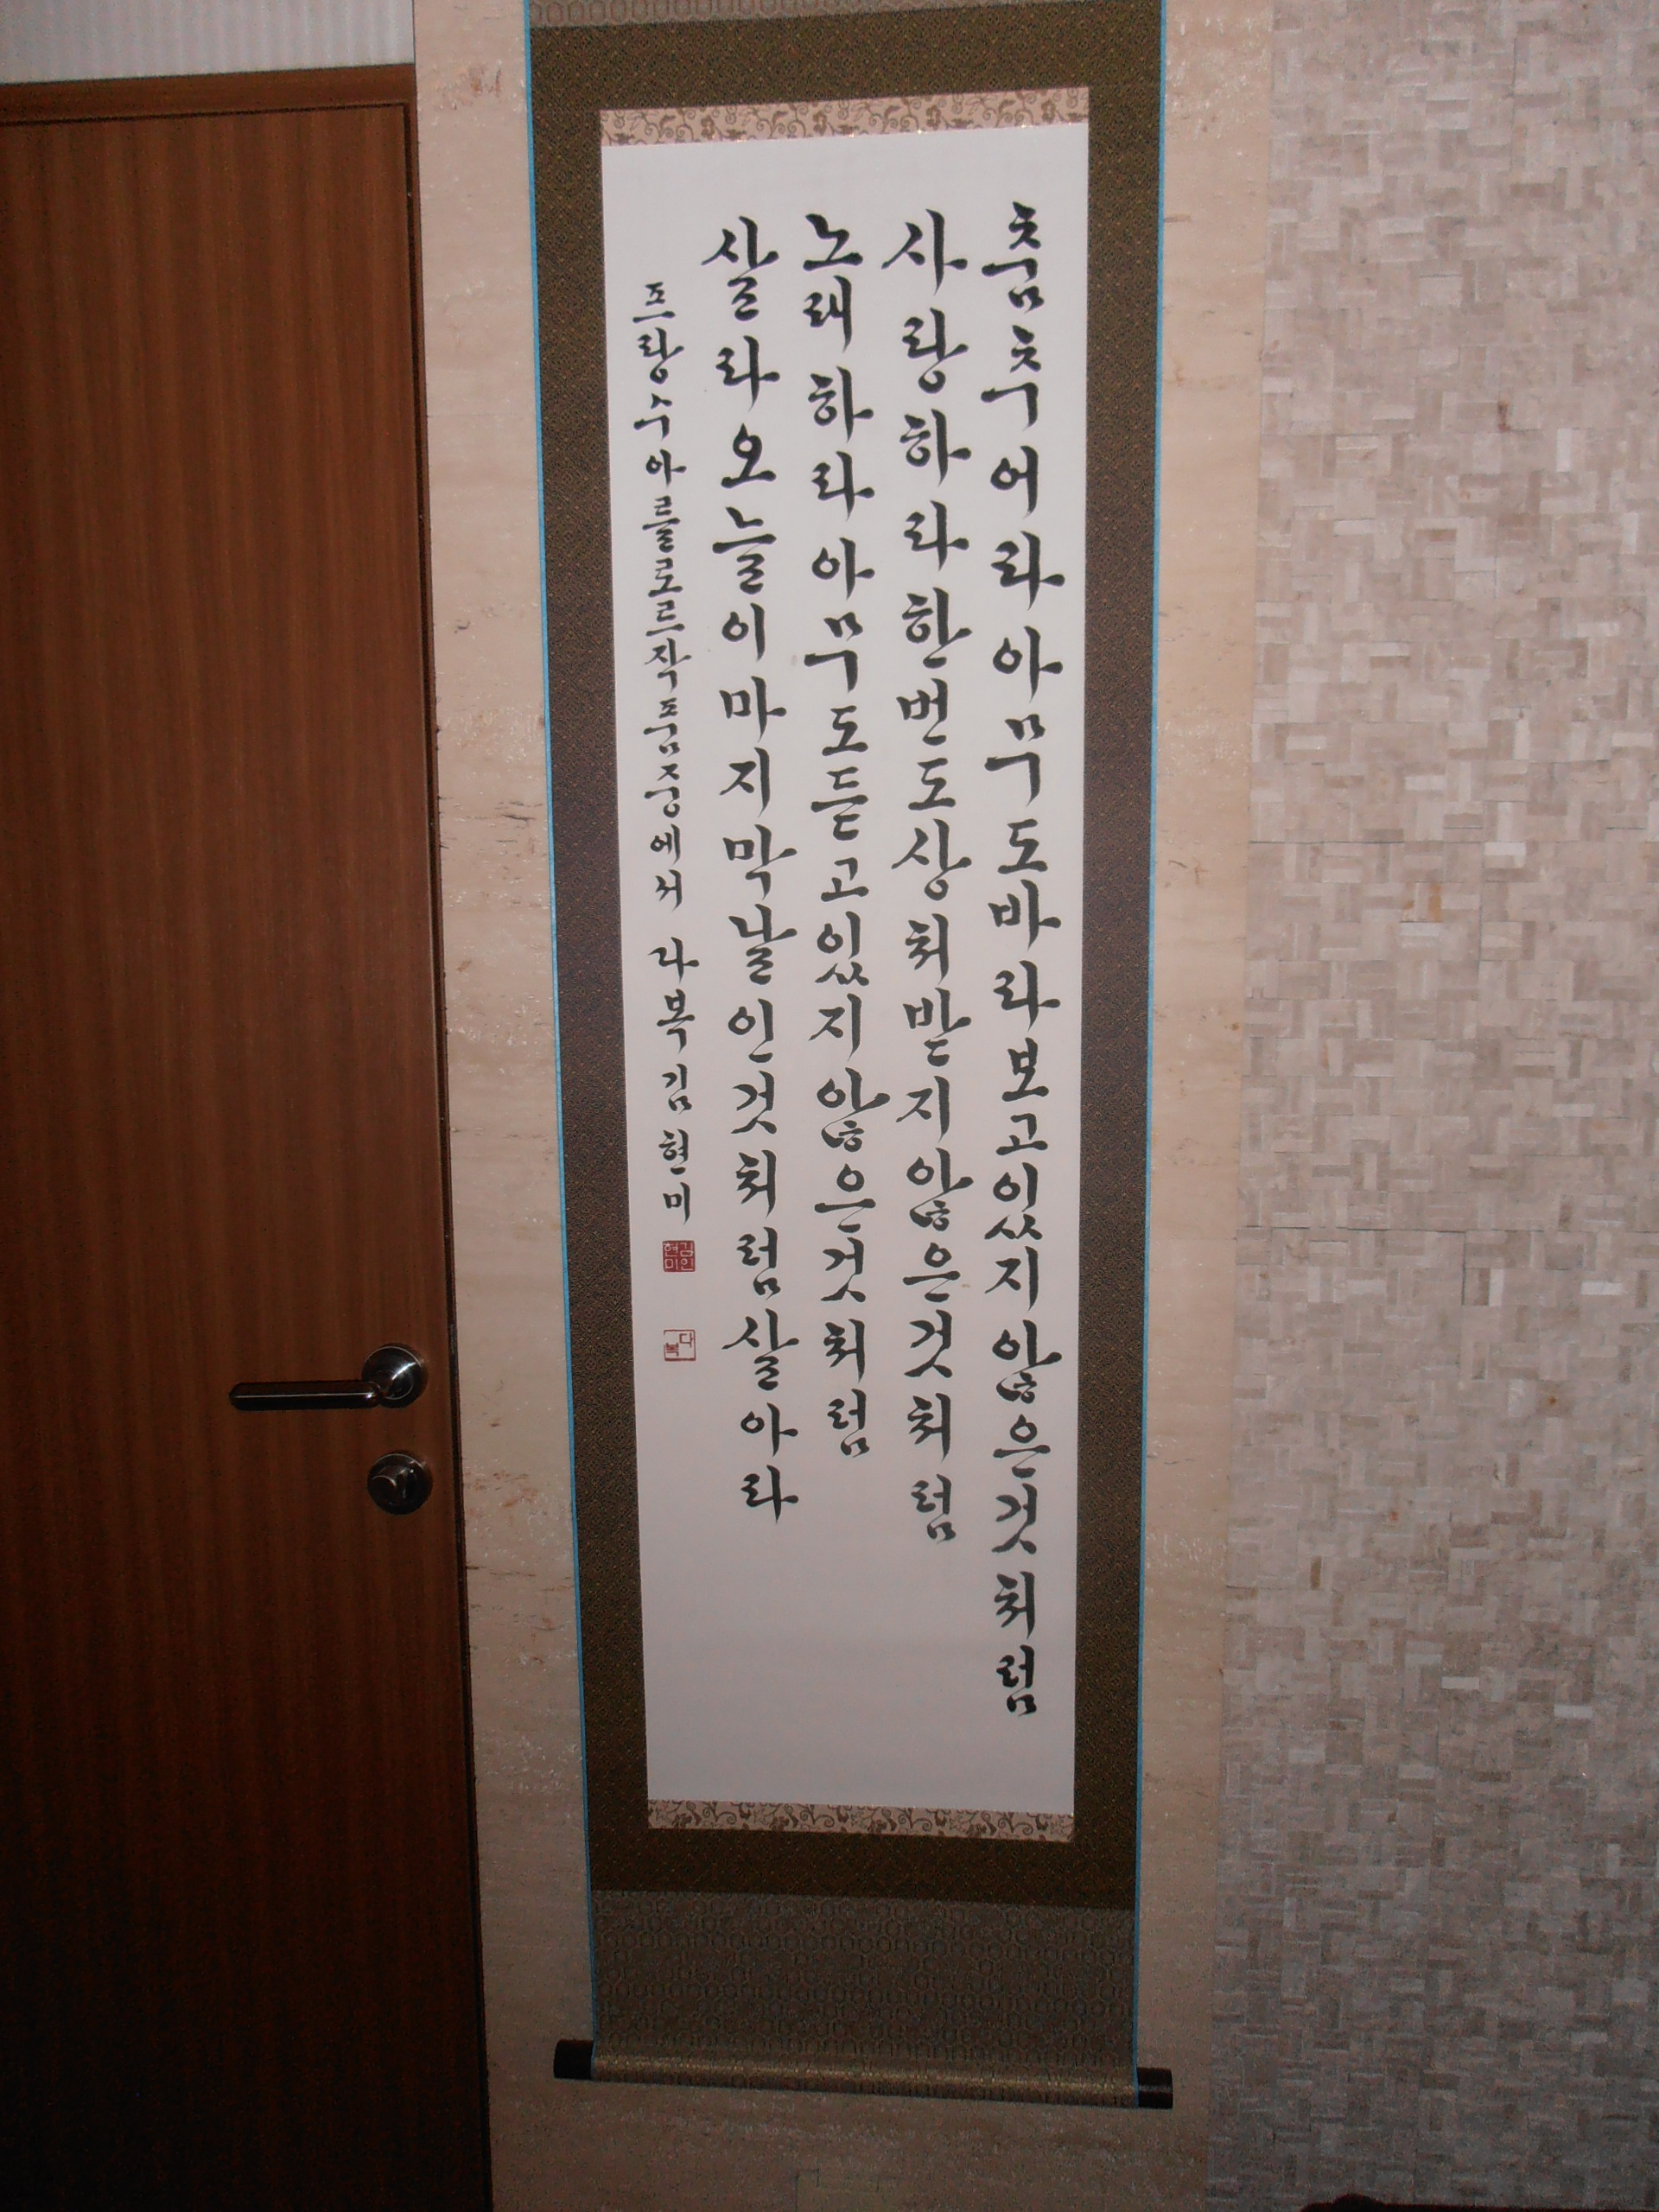 춤추어라아무도바라보고있지않은것처럼
사랑하라한번도상처받지않은것처럼
노래하라아무도듣고있지않은것처럼
살라오늘이마지막날인것처럼살아라
프랑수아를로르작품중에서 다복 김현미
김현미인
다복